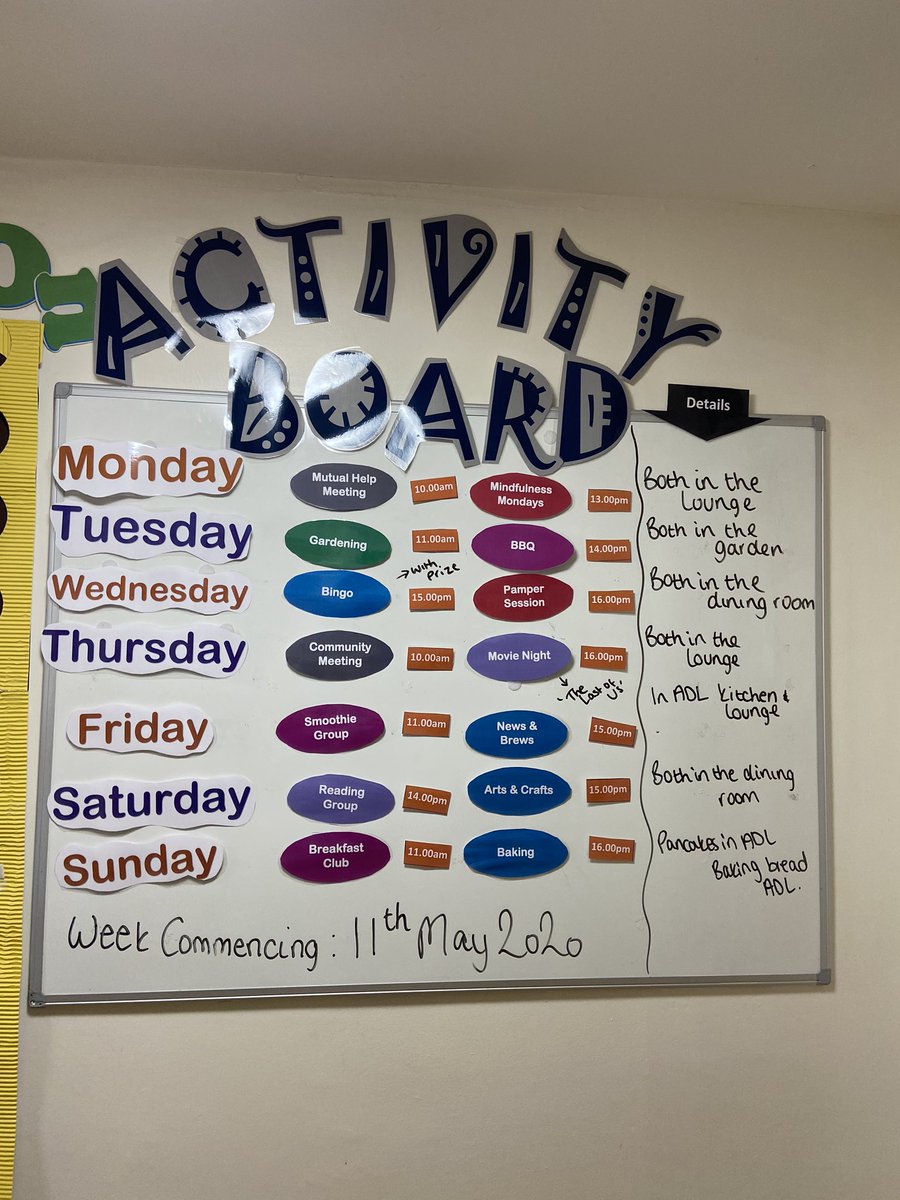 ACTIVITY
BOARD
Details
Monday
Mutual Help
Meeting
10.00am
Mindfulness
Mondays
13.00pm
Both in the
Lounge
Tuesday
Gardening
11.00am
BBQ
14.00pm
Both in the
garden
Wednesday
Bingo
→ with
prize
15.00pm
Pamper
Session
16.00pm
Both in the
dining room
Thursday
Community
Meeting
10.00am
Movie Night
16.00pm
- The
Last of
Us
Both in the
lounge
Friday
Smoothie
Group
11.00am
News &
Brews
15.00pm
In ADL Kitchen &
lounge
Saturday
Reading
Group
14.00pm
Arts & Crafts
15.00pm
Both in the dining
room
Sunday
Breakfast
Club
11.00am
Baking
16.00pm
Pancakes in ADL
Baking bread
ADL.
Week Commencing : 11th May 2020